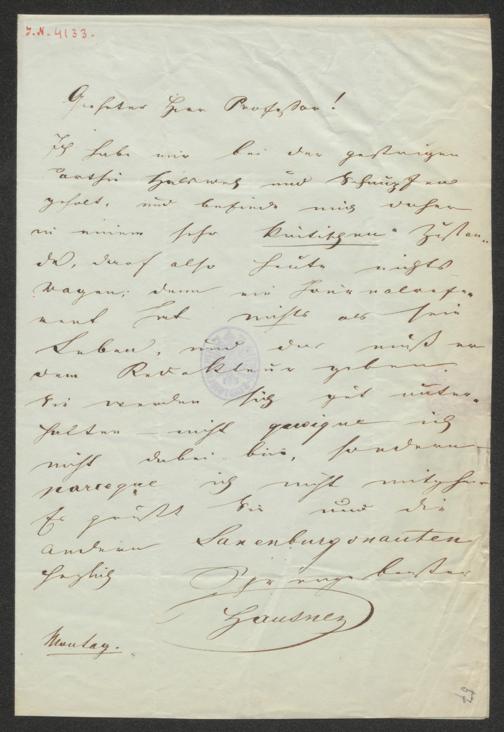 J.N. 4133.
Geehrter Herr Professor!
Ich habe mir bei der gestrigen
Parthie Halsweh und Schnupfen
geholt, und befinde mich daher
in einem sehr kritischen Zustan-
de, darf also heute nichts
wagen; denn ein Journalrefe-
rent hat nichts als sein
Leben, und das muß er
dem Redakteur geben
Sie werden sich gut unter-
halten nicht quoique ich
nicht dabei bin, sondern
parceque ich nicht mitgehe
Es grüßt Sie und die
andern Laxenburgonauten
herzlich Ihr ergebenster
Hausner
Montag.